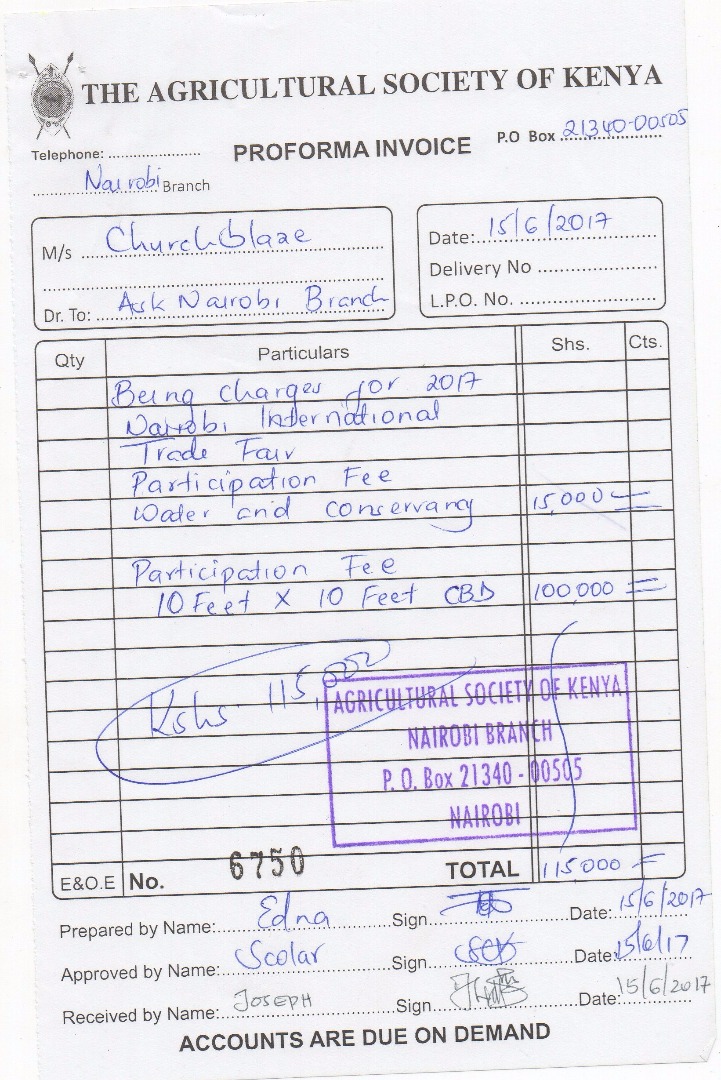 THE AGRICULTURAL SOCIETY OF KENYA
Telephone: ........................ PROFORMA INVOICE P.O Box 21340-00505
Nairobi Branch
M/s Churchblaze
Dr. To: Ask Nairobi Branch
Date: 15/6/2017
Delivery No ........................
L.P.O. No. ........................
Qty Particulars Shs. Cts.
Being charges for 2017
Nairobi International
Trade Fair
Participation Fee
Water and conservancy 15,000 =
Participation Fee
10 Feet X 10 Feet CBD 100,000 =
Kshs 115,000
AGRICULTURAL SOCIETY OF KENYA
NAIROBI BRANCH
P. O. Box 21340 - 00505
NAIROBI
E&O.E No. 6750 TOTAL 115000 =
Prepared by Name: Edna Sign Date: 15/6/2017
Approved by Name: Scolar Sign Date: 15/6/17
Received by Name: JOSEPH Sign Date: 15/6/2017
ACCOUNTS ARE DUE ON DEMAND